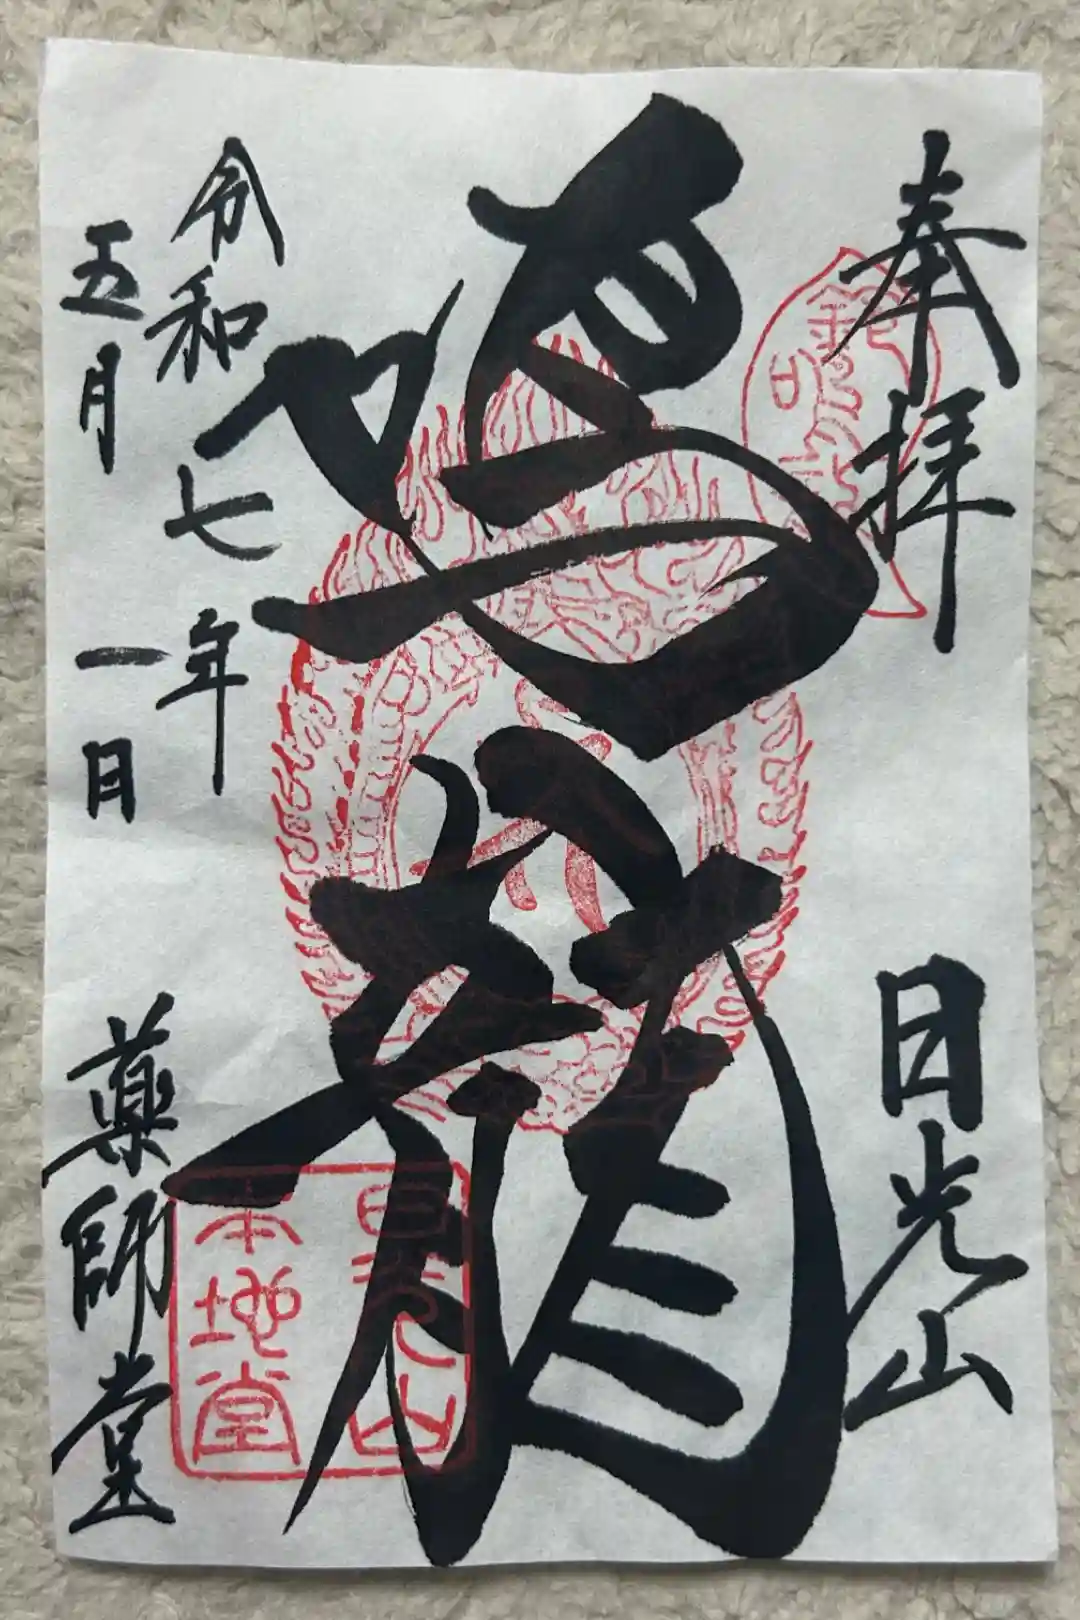 奉拝
日光山
鳴龍
令和七年
五月一日
薬師堂
日光山
本地堂